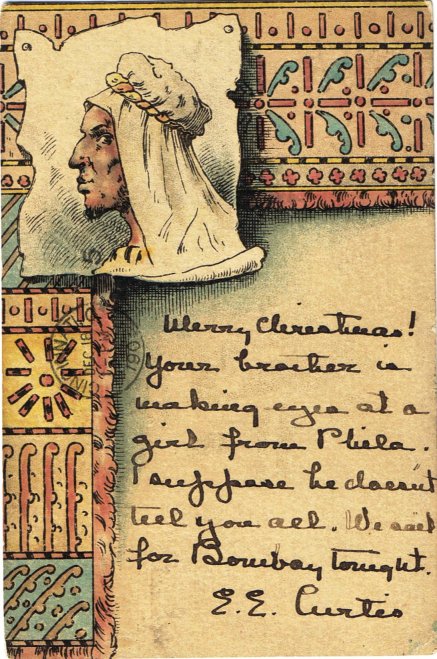 Merry Christmas!
Your brother is
making eyes at a
girl from Phila.
I suppose he doesn't
tell you all. We sail
for Bombay tonight.
E. E. Curtis
DEC 18
190